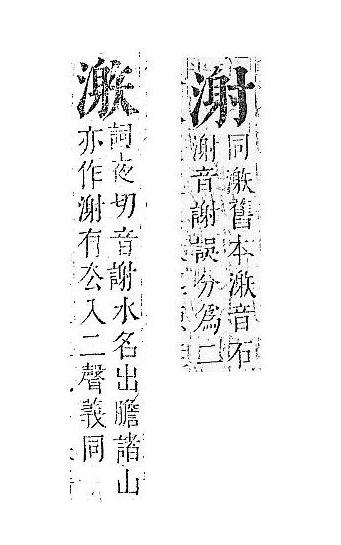 㴬
同舊本音石
㴬音謝誤分爲二
詞夜切音謝水名出膽諸山
亦作㴬有厺入二聲義同